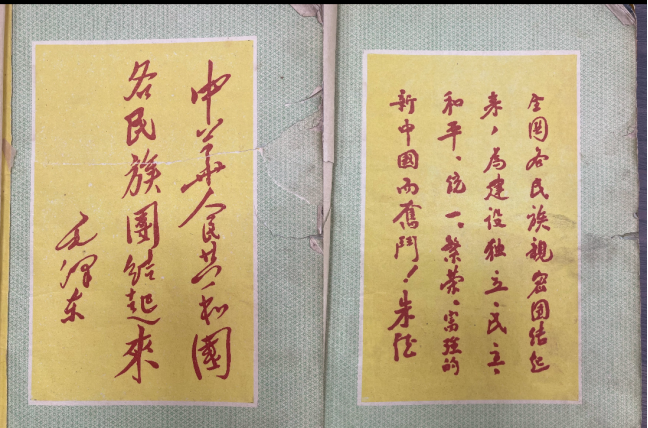 中華人民共和國
各民族團结起來
毛泽东
全国各民族親密团结起
来，為建设独立、民主、
和平、统一、繁荣、富强的
新中國而奮鬥！朱德